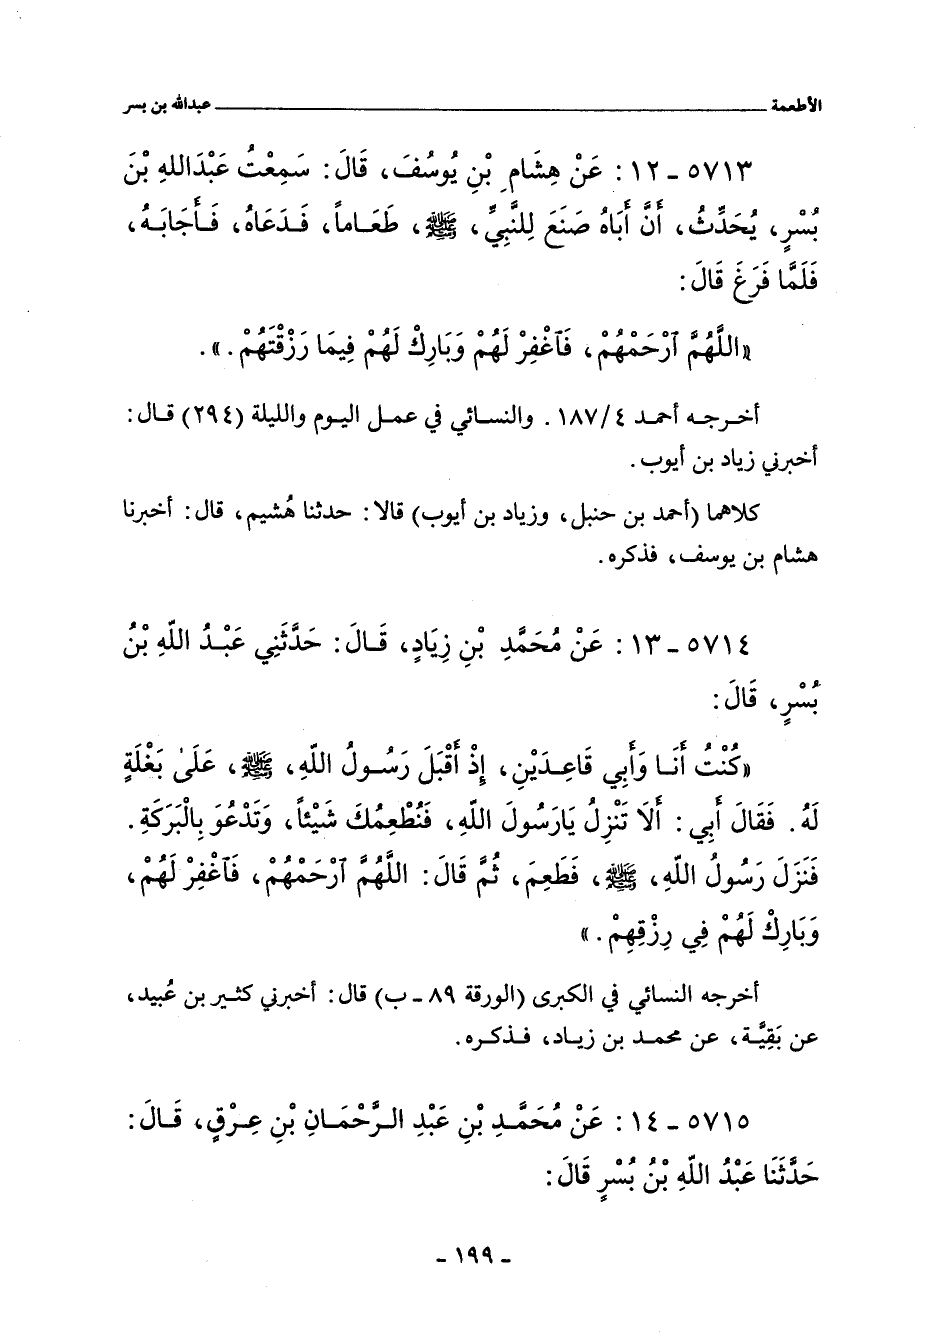 الأطعمة ــــــــــ عبدالله بن بسر
٥٧١٣ ـ ١٢ : عَنْ هِشَامِ بْنِ يُوسُفَ، قَالَ : سَمِعْتُ عَبْدَاللهِ بْنَ
بُسْرٍ، يُحَدِّثُ، أَنَّ أَبَاهُ صَنَعَ لِلنَّبِيِّ، ﷺ، طَعَـاماً، فَـدَعَاهُ، فَـأَجَابَـهُ،
فَلَمَّا فَرَغَ قَالَ :
«اللَّهُمَّ ٱرْحَمْهُمْ، فَٱغْفِرْ لَهُمْ وَبَارِكْ لَهُمْ فِيمَا رَزَقْتَهُمْ . » .
أخـرجـه أحمـد ٤/ ١٨٧ . والنسـائي في عمـل اليـوم والليلة (٢٩٤) قـال :
أخبرني زياد بن أيوب .
كلاهما (أحمد بن حنبل، وزياد بن أيوب) قالا : حدثنا هُشيم، قال : أخبرنا
هشام بن يوسف، فذكره .
٥٧١٤ ـ ١٣ : عَنْ مُحَمَّدِ بْنِ زِيَادٍ، قَـالَ : حَدَّثَنِي عَبْـدُ اللّهِ بْنُ
بُسْرٍ، قَالَ :
«كُنْتُ أَنَـا وَأَبِي قَاعِـدَيْنِ، إِذْ أَقْبَلَ رَسُـولُ اللّهِ، ﷺ، عَلَىٰ بَغْلَةٍ
لَهُ . فَقَالَ أَبِي : أَلَا تَنْزِلُ يَارَسُولَ اللّهِ، فَنُطْعِمُكَ شَيْئاً، وَتَدْعُوَ بِالْبَرَكَةِ .
فَنَزَلَ رَسُولُ اللّهِ، ﷺ، فَطَعِمَ، ثُمَّ قَالَ : اللَّهُمَّ ٱرْحَمْهُمْ، فَٱغْفِرْ لَهُمْ،
وَبَارِكْ لَهُمْ فِي رِزْقِهِمْ . »
أخرجه النسائي في الكبرى (الورقة ٨٩ ـ ب) قال : أخبرني كثـير بن عُبيد،
عن بَقِيَّـة، عن محمـد بن زيـاد، فـذكـره .
٥٧١٥ ـ ١٤ : عَنْ مُحَمَّـدِ بْنِ عَبْدِ الـرَّحْمَـانِ بْنِ عِـرْقٍ، قَـالَ :
حَدَّثَنَا عَبْدُ اللّهِ بْنُ بُسْرٍ قَالَ :
ـ ١٩٩ ـ